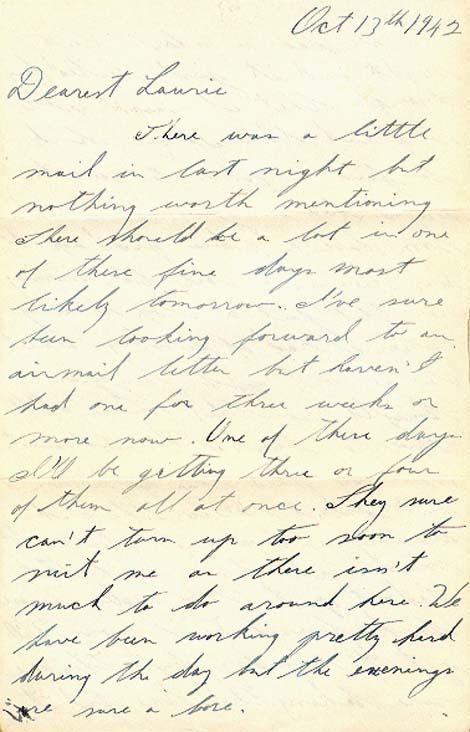 Oct 13th 1942
Dearest Laurie
There was a little
mail in last night but
nothing worth mentioning
There should be a lot in one
of these fine days most
likely tomorrow. I've sure
been looking forward to an
airmail letter but haven't
had one for three weeks or
more now. One of these days
I'll be getting three or four
of them all at once. They sure
can't turn up too soon to
suit me as there isn't
much to do around here. We
have been working pretty hard
during the day but the evenings
are sure a bore.